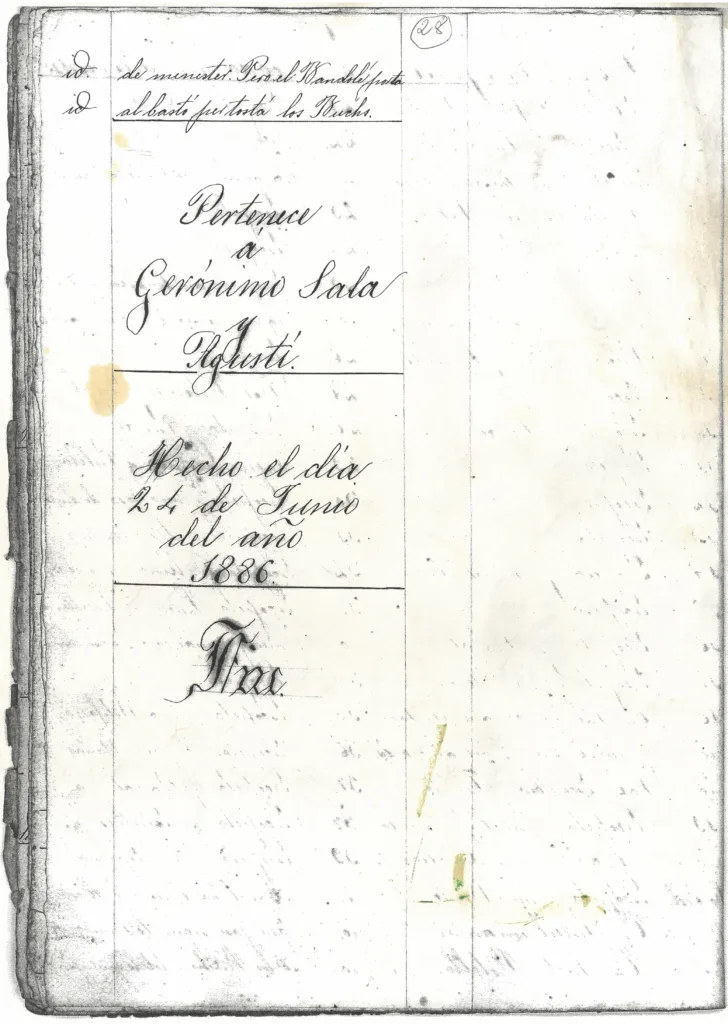 28
id. de menester. Pero el Wandolé porta
id al bastó per tostá los Wuchs.
Pertenece
á
Gerónimo Sala
y
Agustí.
Hecho el día
24 de Junio
del año
1886.
Fin.